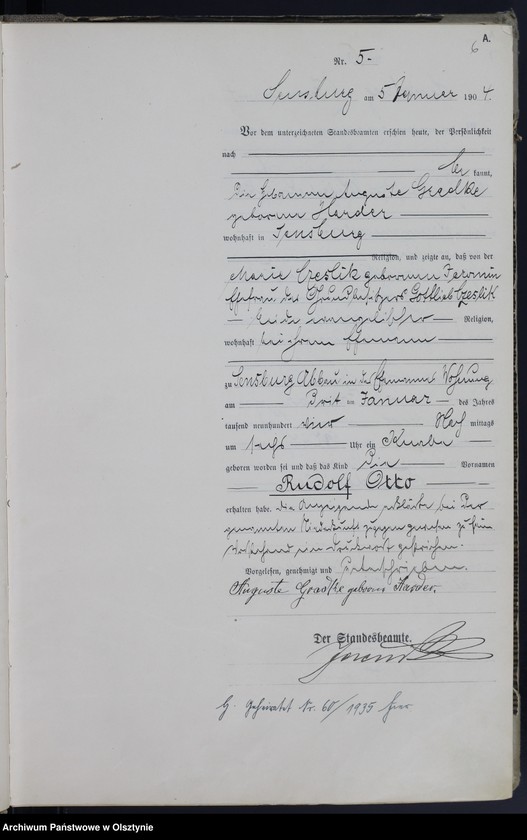 6 A.
Nr. 5.
Sensburg am 5 Januar 1904.
Vor dem unterzeichneten Standesbeamten erschien heute, der Persönlichkeit
nach
kannt,
die Hebamme Auguste Gradtke
geborene Harder
wohnhaft in Sensburg
Religion, und zeigte an, daß von der
Marie Czeslik geborenen
Ehefrau des Grundbesitzers Gottlieb Czeslik
beide evangelischer Religion,
wohnhaft bei ihrem Ehemann
zu Sensburg Abbau in des Ehemannes Wohnung
am Januar des Jahres
tausend neunhundert vier Nach mittags
um sechs Uhr ein Knabe
geboren worden sei und daß das Kind die Vornamen
Rudolf Otto
erhalten habe. Die Anzeigende erklärte bei der
Niederkunft zugegen gewesen zu sein
Vorstehend ein Druckwort gestrichen.
Vorgelesen, genehmigt und unterschrieben.
Auguste Gradtke geborene Harder.
Der Standesbeamte.
G. Geheiratet Nr. 60/1935 hier
Archiwum Państwowe w Olsztynie